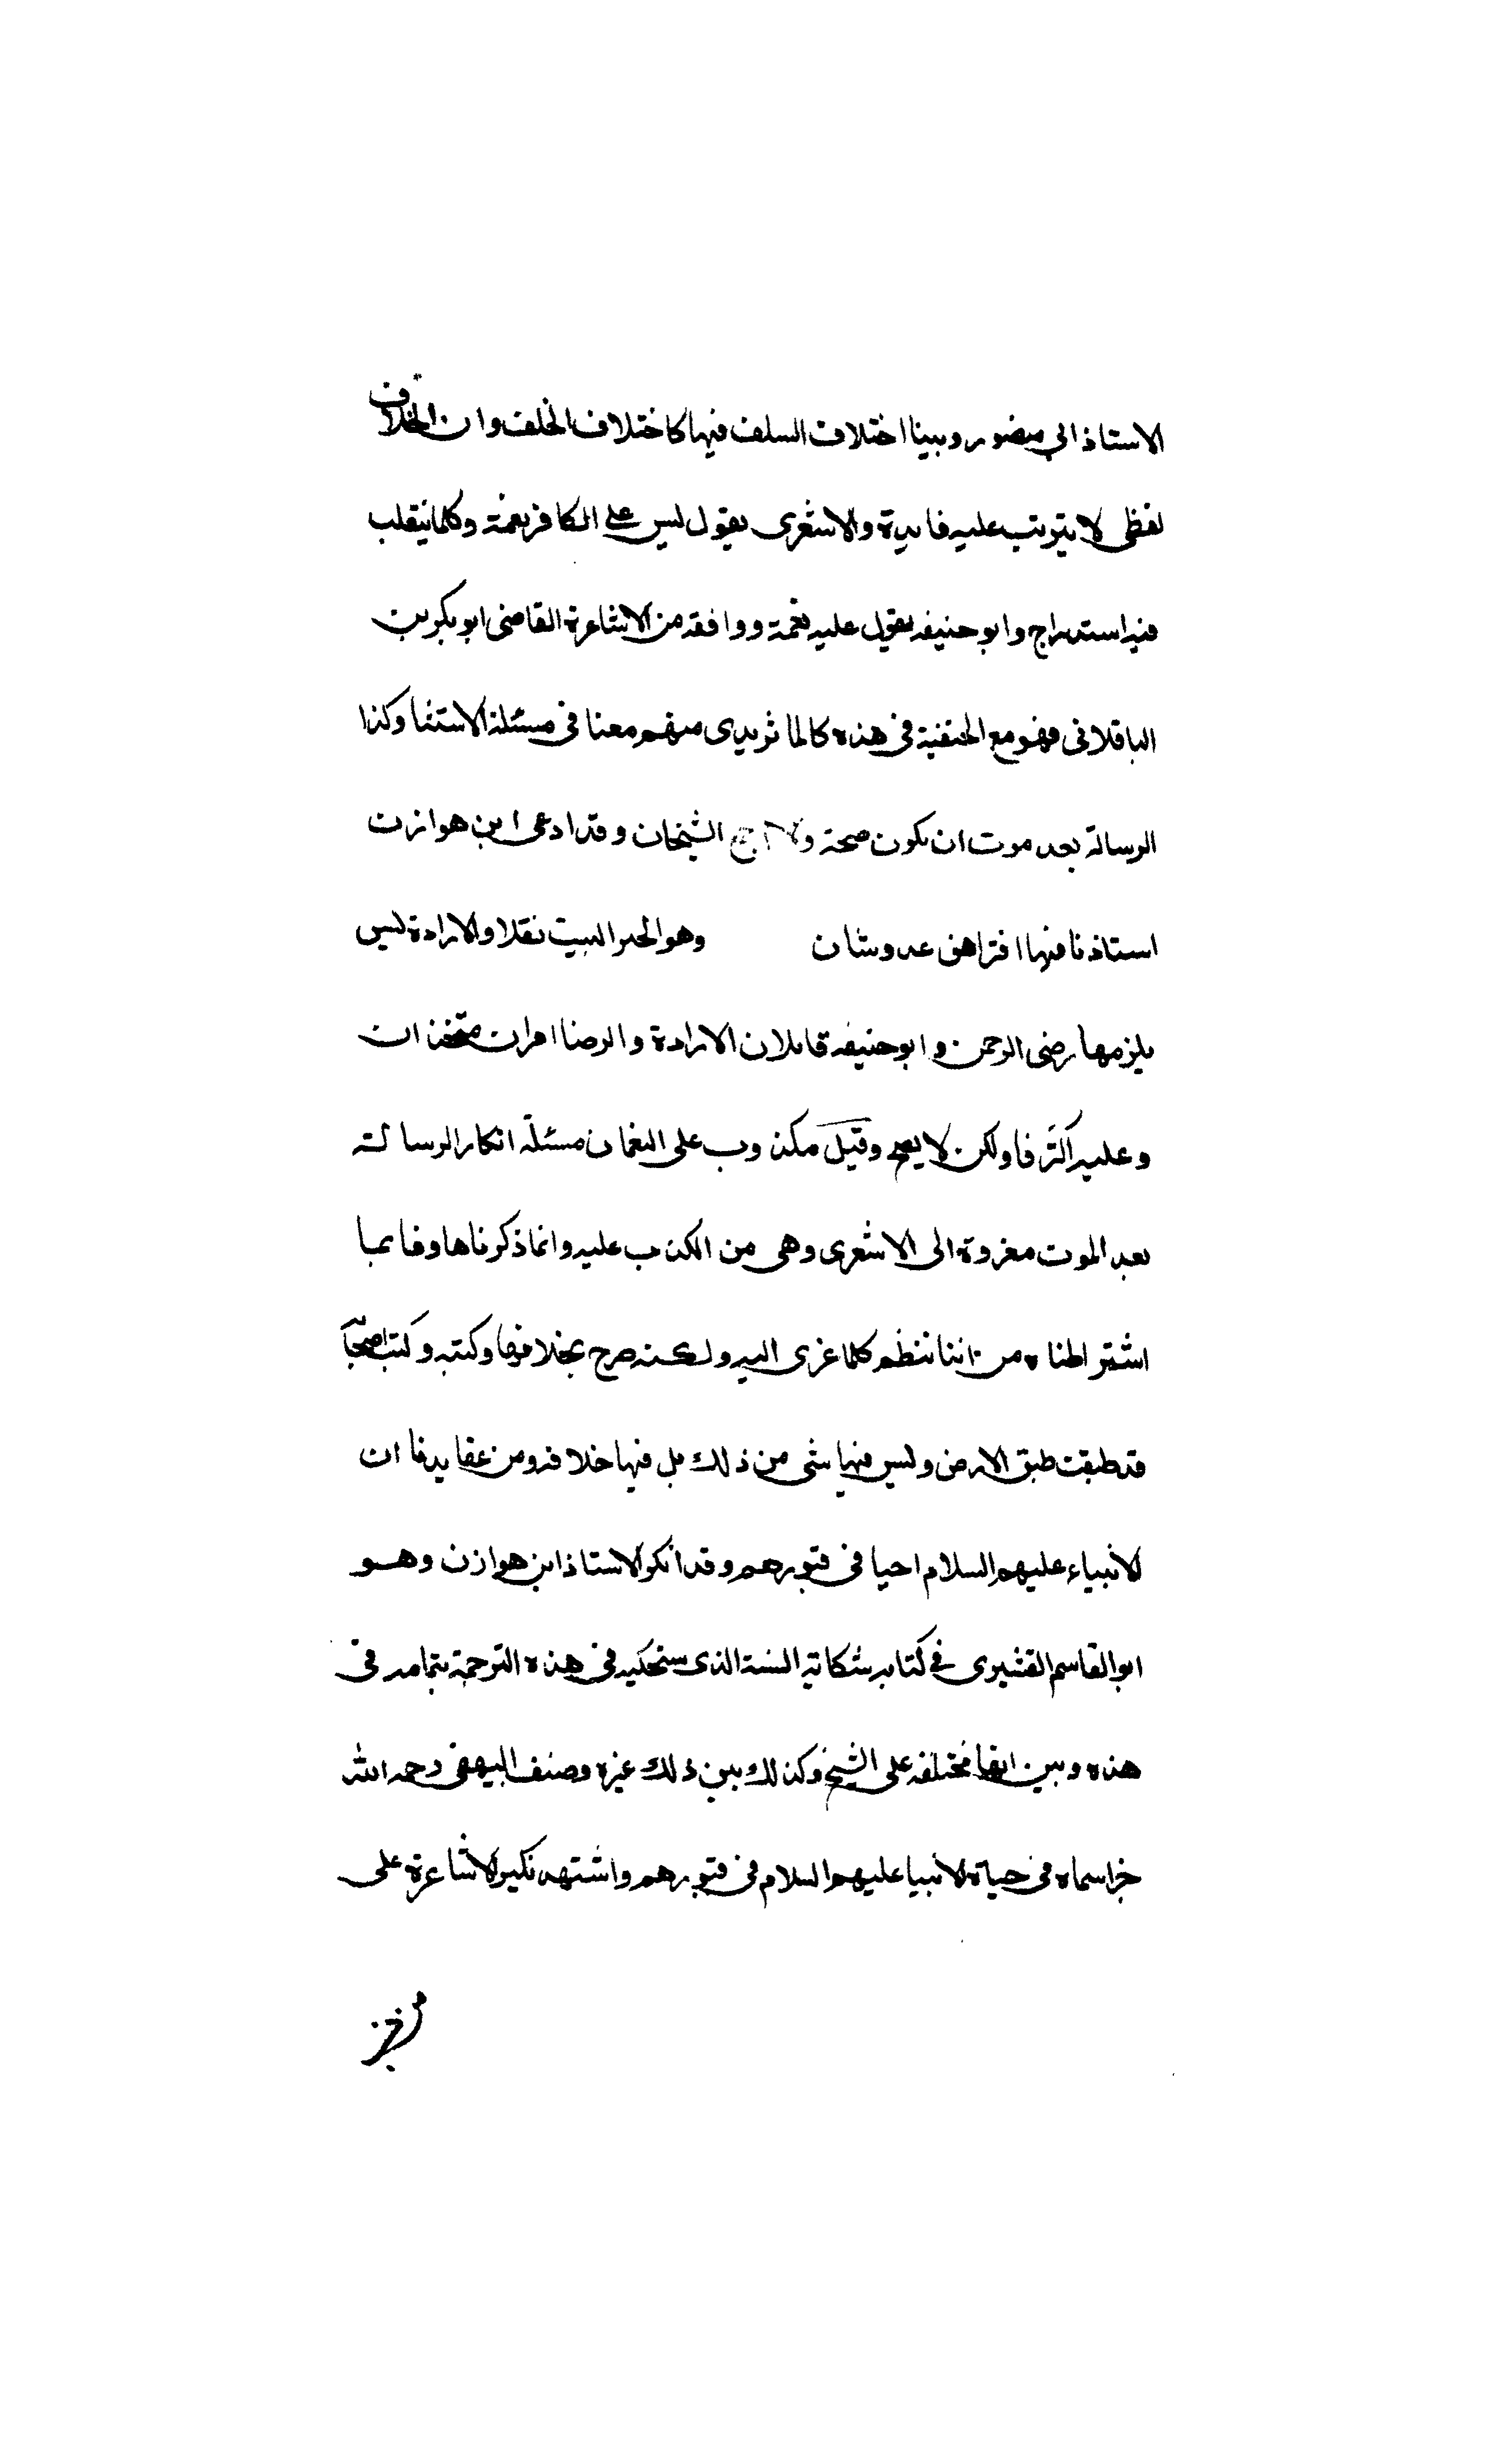 الاستاذ ابي منصور وبينا اختلاف السلف فيها كاختلاف الخلف وان الخلاف
لفظي لا يترتب عليه فايدة والاشعري يقول ليس على الكافر نعمة وكلما يتقلب
فيه استدراج وابو حنيفه يقول عليه نعمة ووافقه من الاشاعرة القاضي ابو بكر بن
الباقلاني فهو مع الحنفية في هذه كالماتريدي منهم معنا في مسئلة الاستثنا وكذا
الرسالة بعد موت ان يكون صحة الشيخان وقد ادعى ابن هوازن
استاذنا فيها افتراه من عدو شان وهو الخبر الثبت نقلا والارادة ليس
يلزمها رضى الرحمن وابو حنيفه قايلان الارادة والرضا امران متحدان
وعليه اكثرنا ولكن لا يصح وقيل مكذوب على النعمان مسئلة انكار الرسالة
بعد الموت معزوة الى الاشعري وهي من الكذب عليه وانما ذكرناها وفا بما
اشترطناه من اننا ننظم كلما عزى اليه ولكنه صرح بخلافها وكتبه وكتب اصحابه
قد طبقت طبق الارض وليس فيها شي من ذلك بل فيها خلافه ومن عقايدنا ان
الانبياء عليهم السلام احيا في قبورهم وقد انكر الاستاذ ابن هوازن وهو
ابو القاسم القشيري في كتابه شكاية السنة الذي سنحكيه في هذه الترجمة بتمامه في
هذه وبين انها مختلقه على الشيخ وكذلك بين ذلك غيره وصنف البيهقي رحمه الله
جزا سماه في حياة الانبيا عليهم السلام في قبورهم واشتهد نكير الاشاعرة على